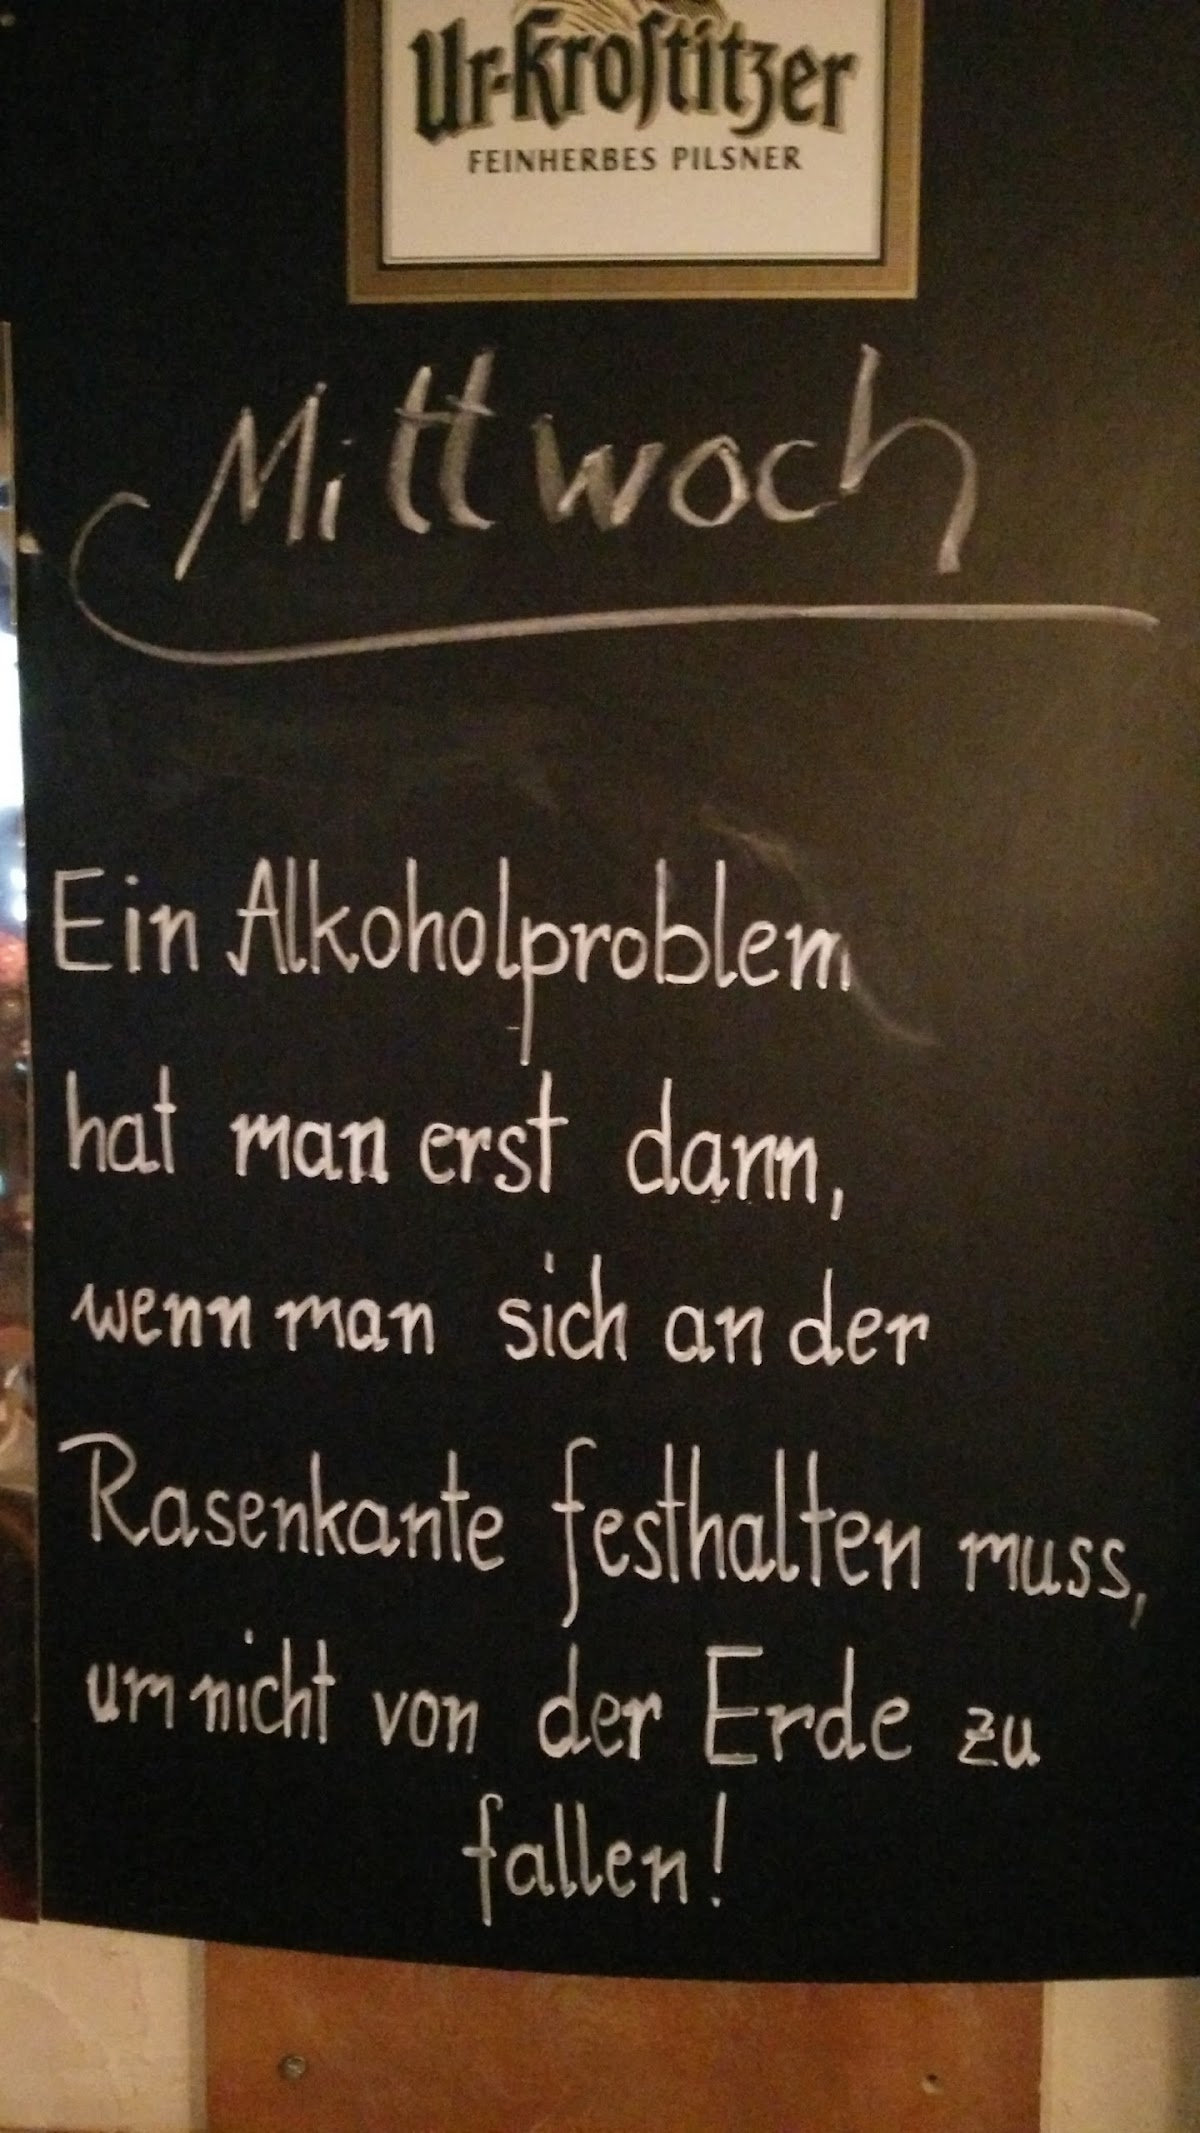 Ur-Krostitzer
FEINHERBES PILSNER
Mittwoch
Ein Alkoholproblem
hat man erst dann,
wenn man sich an der
Rasenkante festhalten muss,
um nicht von der Erde zu
fallen!